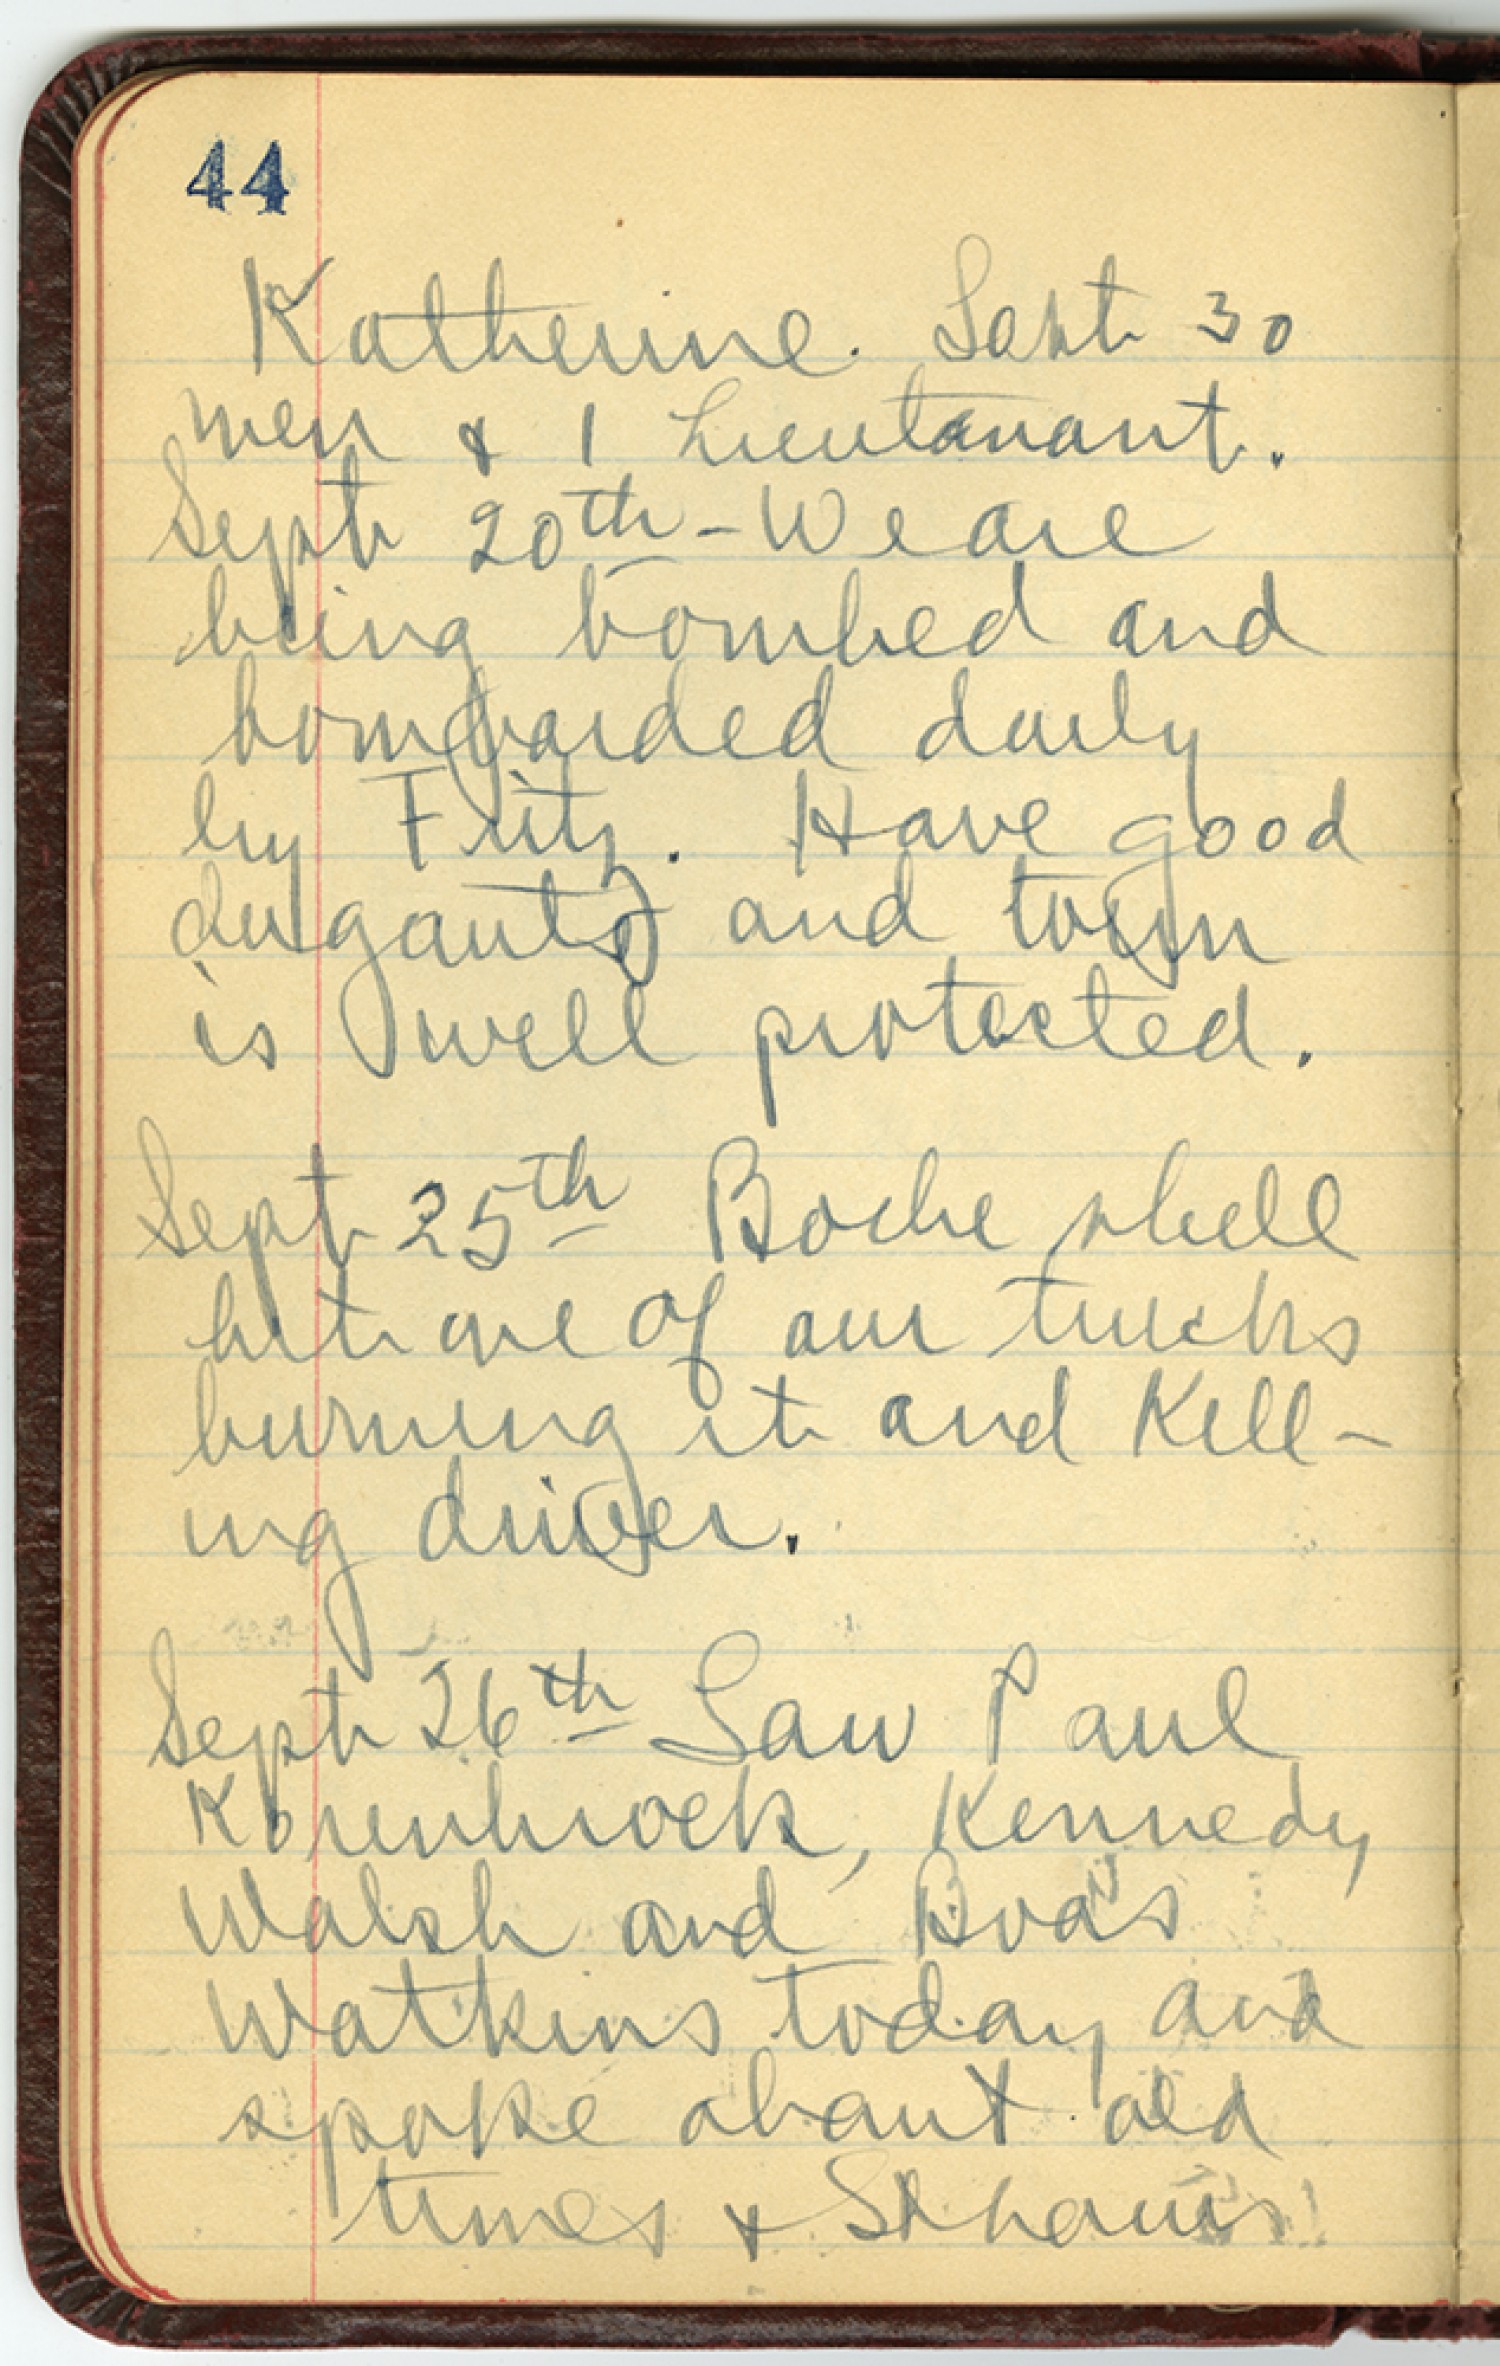 44
Katherine. Lost 30
men & 1 Lieutanant.
Sept 20th - We are
being bombed and
bombarded daily
by Fritz. Have good
dugouts and town
is well protected.
Sept 25th Boche shell
hit one of our trucks
burning it and Kill-
ing driver.
Sept 26th Saw Paul
Korenbrock, Kennedy
Walsh and
Watkins today and
spoke about old
times & St Louis